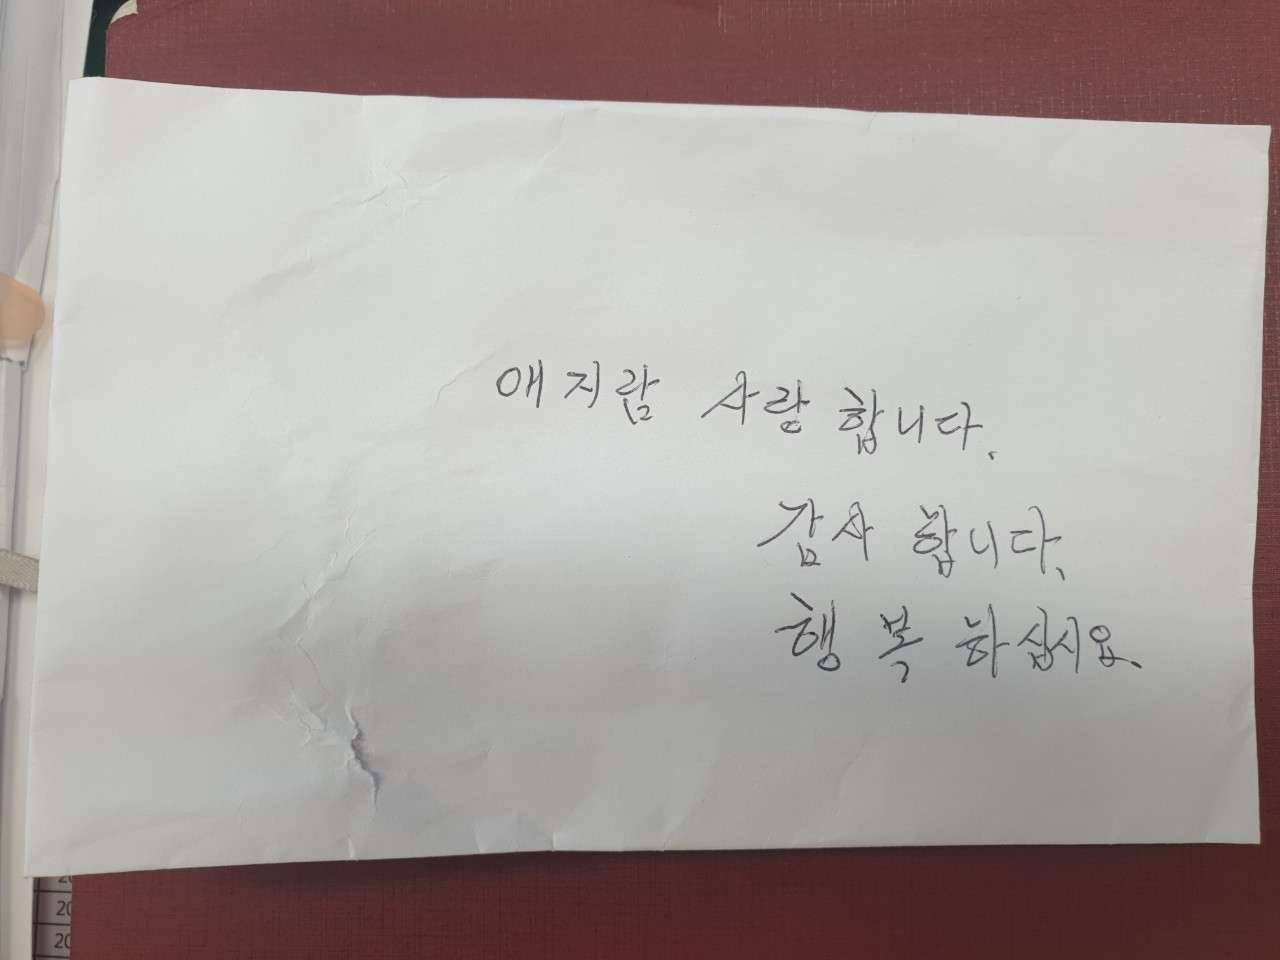 애지람 사랑합니다.
감사합니다.
행복하십시요.
20
20
20